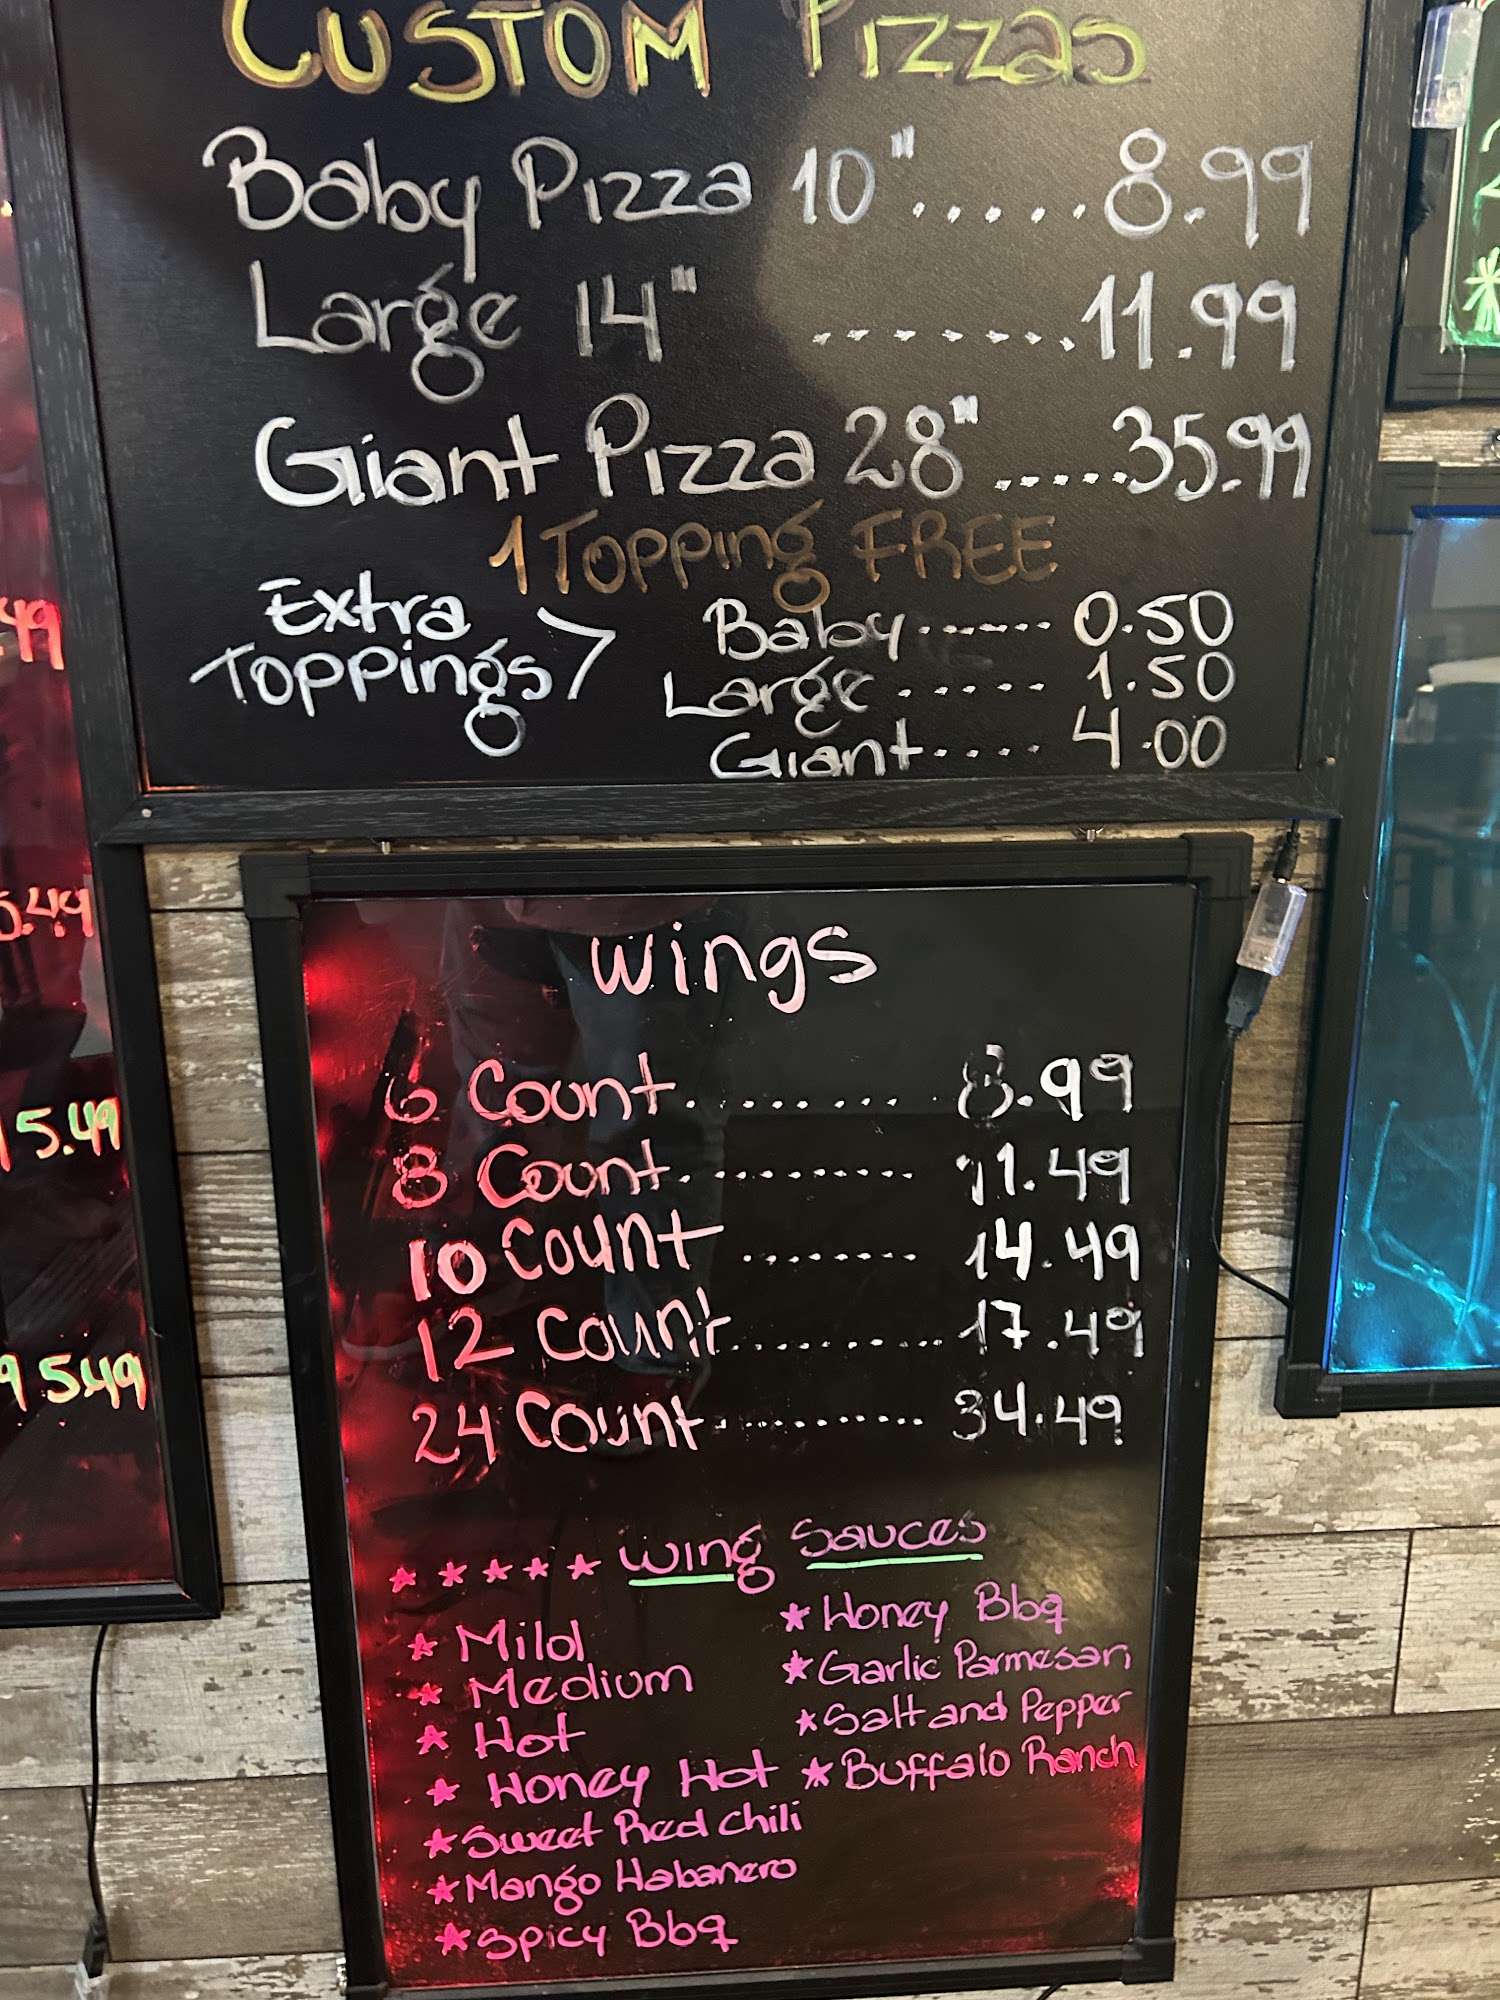 CUSTOM Pizzas
Baby Pizza 10".....8.99
Large 14" .......11.99
Giant Pizza 28".....35.99
1 Topping FREE
Extra Toppings >
Baby...... 0.50
Large..... 1.50
Giant.... 4.00
Wings
6 Count......... 8.99
8 Count.......... 11.49
10 Count ........ 14.49
12 Count.......... 17.49
24 Count........... 34.49
★ ★ ★ ★ ★ Wing Sauces
★ Mild
★ Medium
★ Hot
★ Honey Hot
★ Sweet Red chili
★ Mango Habanero
★ Spicy Bbq
★ Honey Bbq
★ Garlic Parmesan
★ Salt and Pepper
★ Buffalo Ranch
.49
5.49
5.49